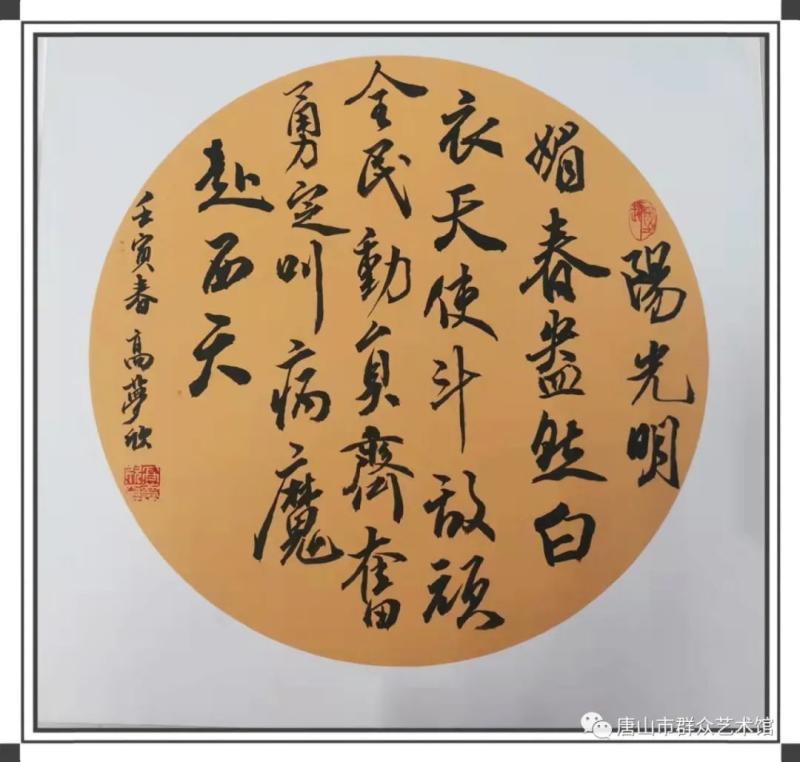 陽光明
媚春盎然白
衣天使斗敌顽
全民動員齊奮
勇定叫病魔
赴西天
壬寅春 高夢欣
唐山市群众艺术馆